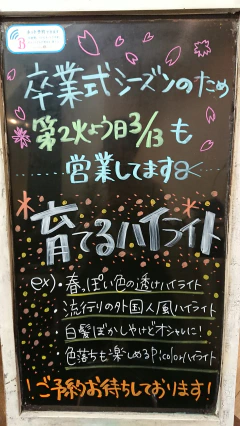 卒業式シーズンのため
第2火よう日3/13も
営業してます
育てるハイライト
ex)・春っぽい色の透けハイライト
・流行りの外国人風ハイライト
白髪ぼかしやけどオシャレに!
色落ちも楽しめるPicolorハイライト
!ご予約お待ちしております!